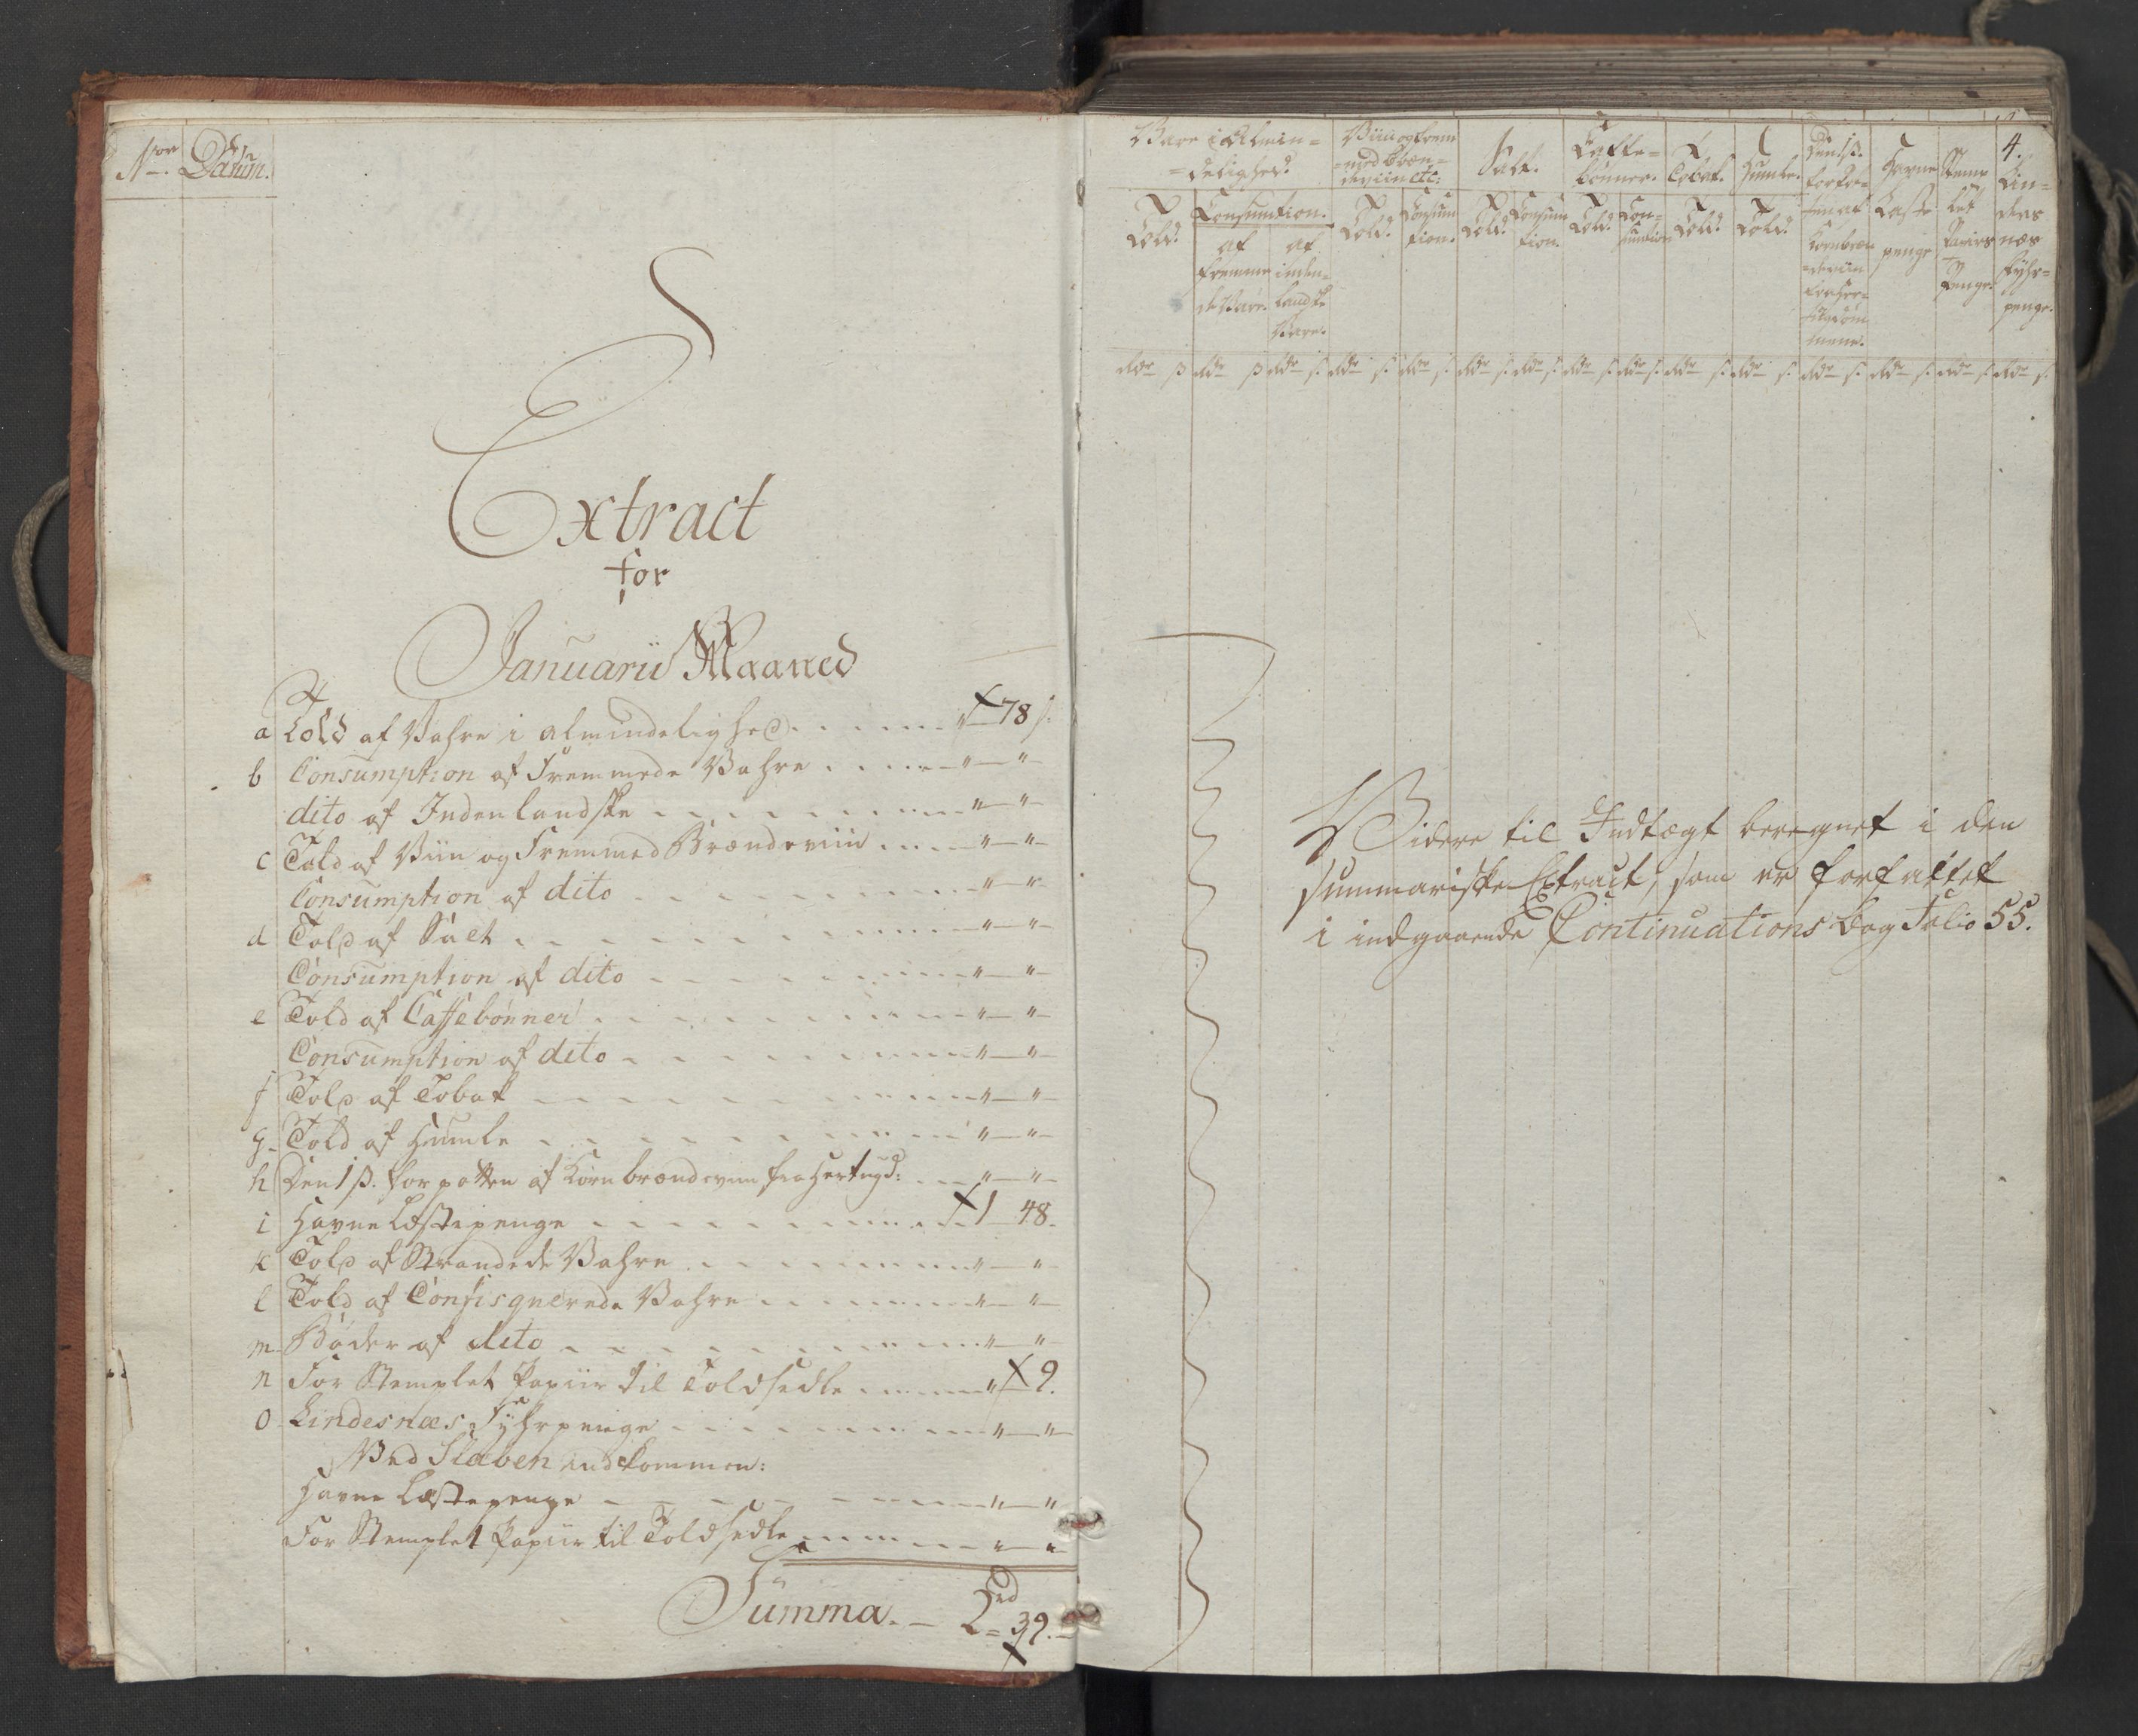 Nor. Datum.
Extract
for
Januarii Maaned
a Told af Vahre i almindelighed " 78 s.
b Consumption af Fremmede Vahre " "
dito af Indenlandske " "
c Told af Viin og Fremmed Brændeviin " "
Consumption af dito " "
d Told af Salt " "
Consumption af dito " "
e Told af Caffebønner " "
Consumption af dito " "
f Told af Tobak " "
g Told af Humle " "
h Den 1 ß. for potten af Korn brændeviin fra Hertugd: " "
i Havne Læstepenge 1 48.
k Told af Strandede Vahre " "
l Told af Confisquerede Vahre " "
m Bøder af dito " "
n For Stemplet Papiir til Toldsedle " 9.
o Lindesnæs Fyhrpenge " "
Ved Staben indkommen:
Havne Læstepenge " "
For Stemplet Papiir til Toldsedle " "
Summa. 2 rd 39.
4.
Vare i Almin=
=delighed.
Told.
Consumtion.
af
fremme
de Vare.
af
inden=
landske
Vare.
Viin og frem
=med Bræn=
deviin etc:
Told.
Consum
tion.
Salt.
Told.
Consum
tion.
Caffe=
bønner.
Told.
Con=
sumtion
Tobak.
Told.
Humle.
Told.
Den 1 ß.
for Pot=
ten af
Kornbræn
=deviin
fra Her=
tugdøm
mene.
Havne
Læste
penge
Stemp
let
Papiirs
Penge.
Lin=
des
næs
Fyhr=
penge.
rdr ß rdr ß rdr s. rdr s. rdr s. rdr s. rdr s. rdr s. rdr s. rdr s. rdr s. rdr s. rdr s. rdr s. rdr s.
Videre til Indtægt beregnet i den
summariske Extract, som er forfattet
i indgaaende Continuations bog Folio 55.